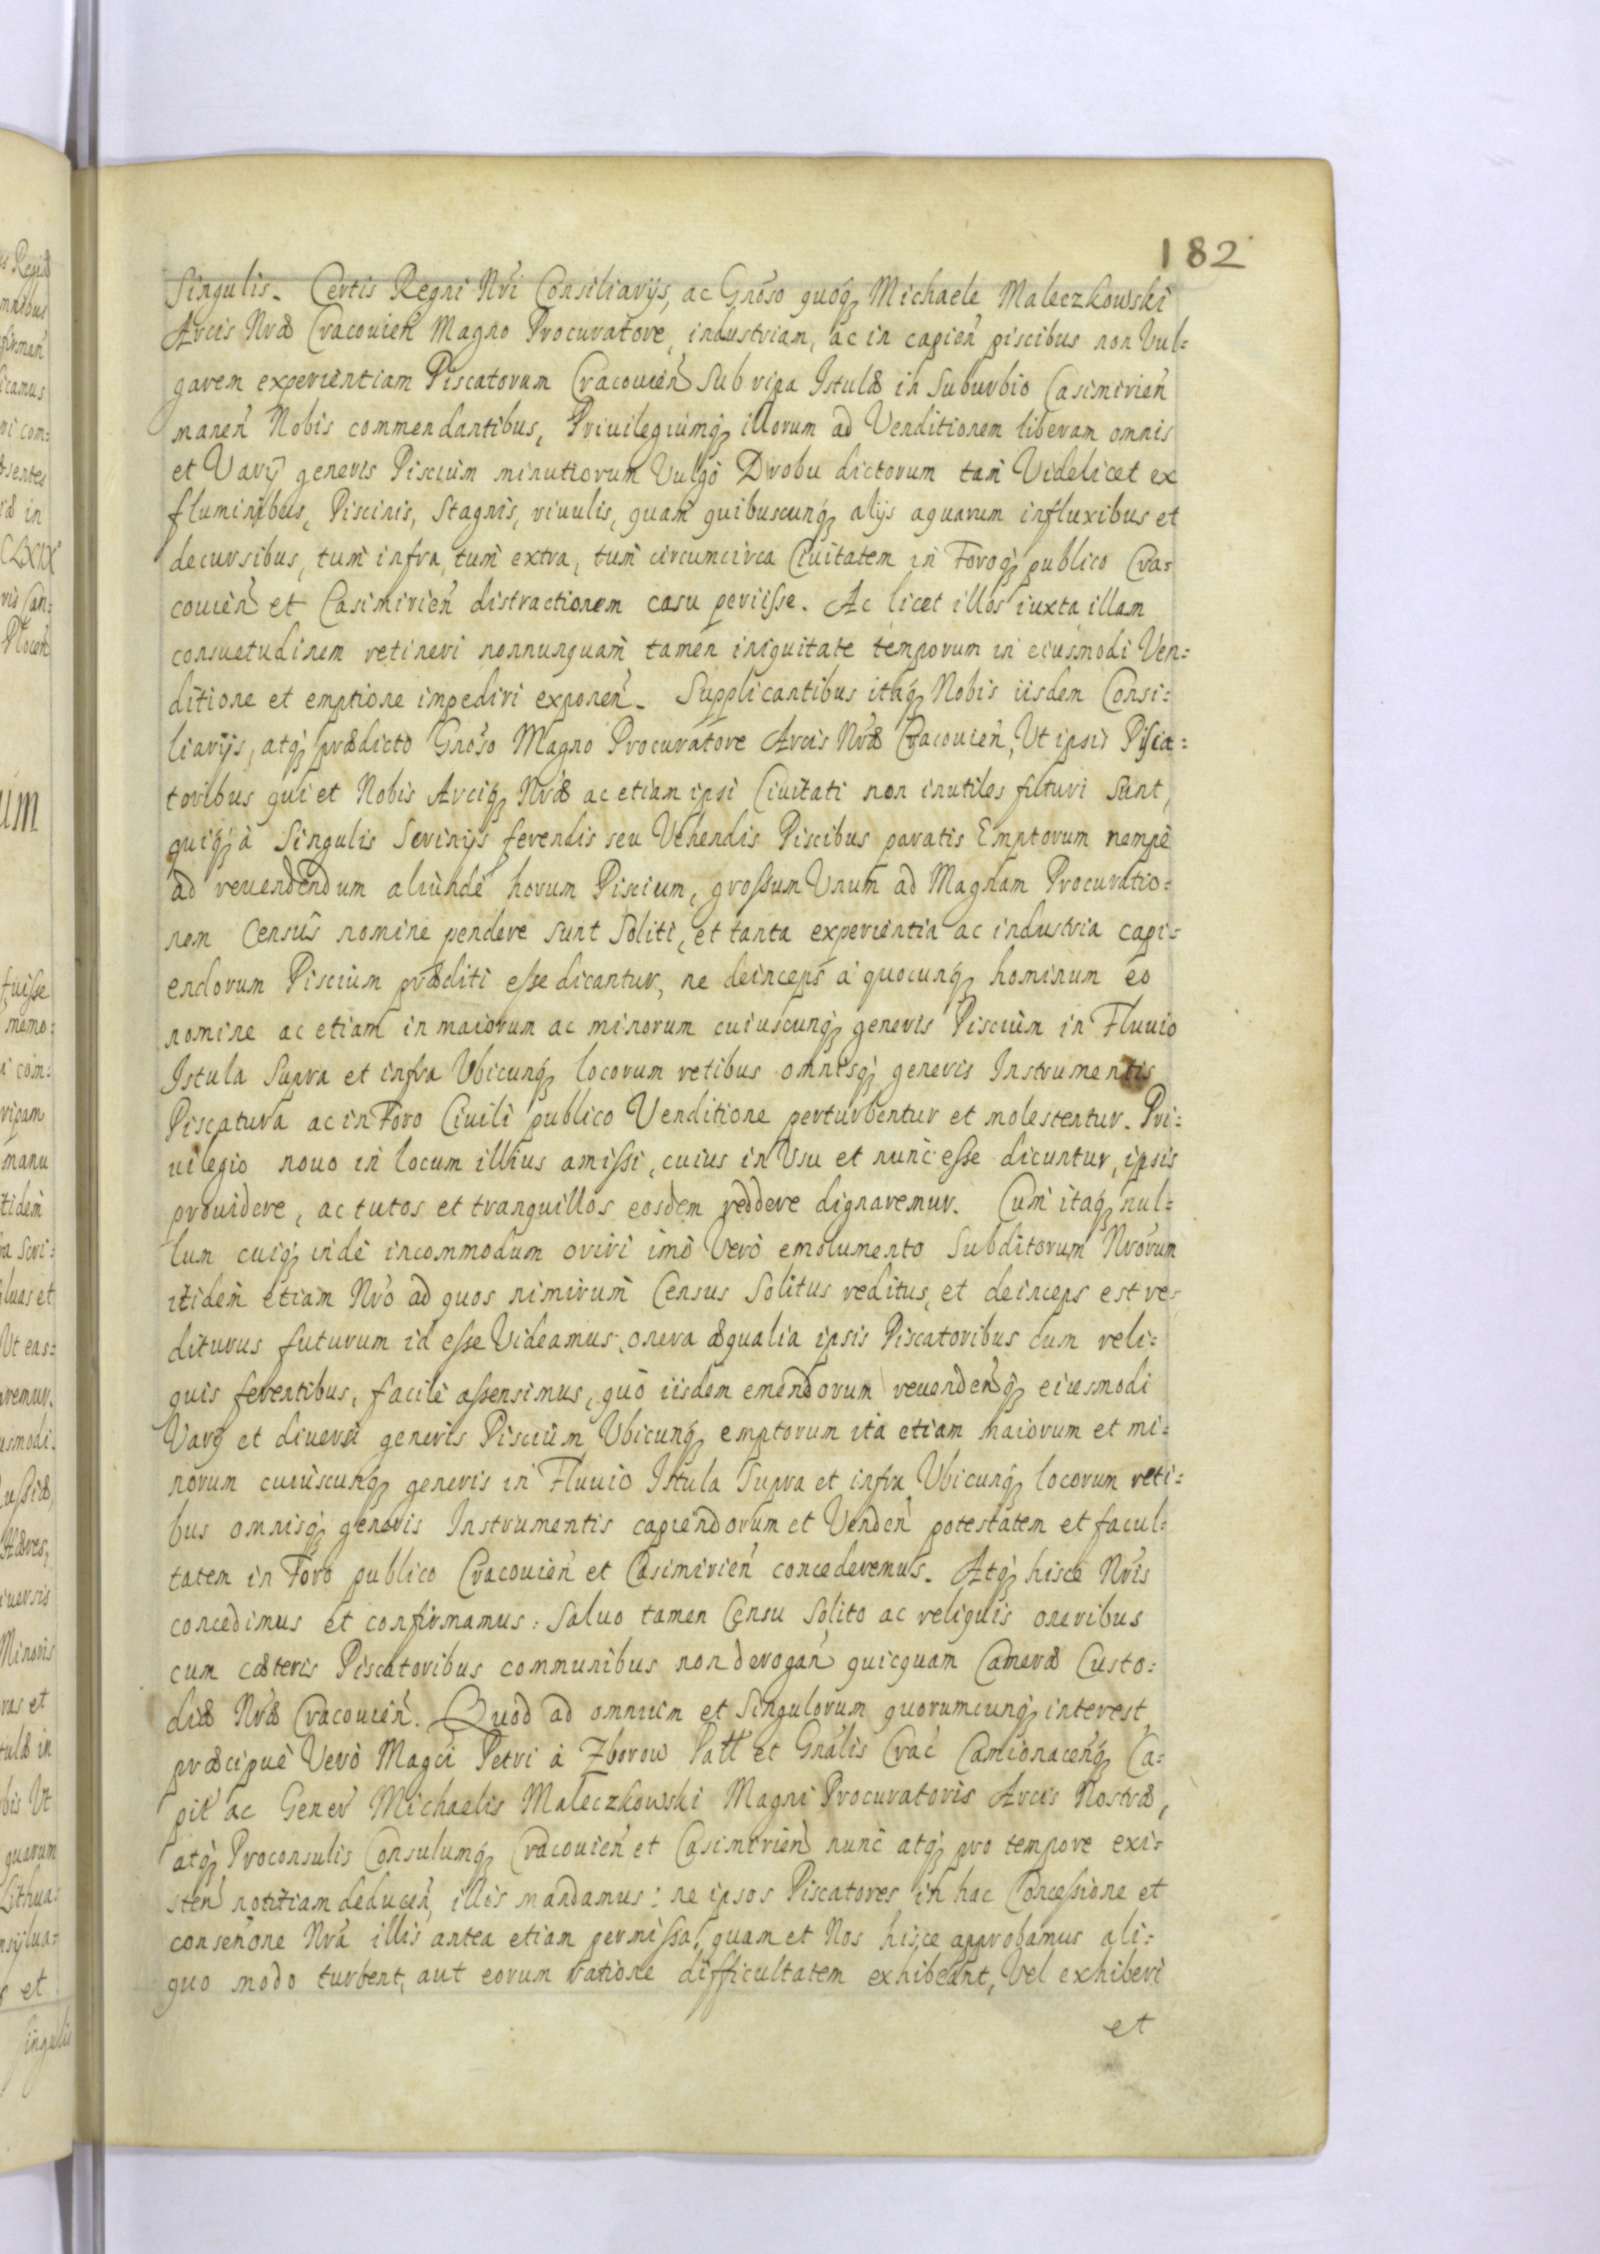 182
Singulis. Certis Regni Nri Consiliarijs, ac Gnoso quoq; Michaele Maleczkowski
Arcis Nræ Cracouien Magno Procuratore, industriam, ac in capien piscibus non Vul=
garem experientiam Piscatorum Cracouien Sub ripa Istulæ in Suburbio Casimirien
manen Nobis commendantibus, Priuilegiumq; illorum ad Venditionem liberam omnis
et Varij generis Piscium minutiorum Vulgo Drobu dictorum tam Videlicet ex
fluminibus, Piscinis, Stagnis, riuulis, quam quibuscunq; alijs aquarum influxibus et
decursibus, tum infra, tum extra, tum circumcirca Ciuitatem in Foroq; publico Cra=
couien et Casimirien distractionem casu periisse. Ac licet illos iuxta illam
consuetudinem retineri nonnunquam tamen iniquitate temporum in eiusmodi Ven=
ditione et emptione impediri exponen. Supplicantibus itaq; Nobis iisdem Consi=
liarijs, atq; prædicto Gnoso Magno Procuratore Arcis Nræ Cracouien, Ut ipsis Pisca=
toribus qui et Nobis Arciq; Nræ ac etiam ipsi Ciuitati non inutiles futuri Sunt,
quiq; à Singulis Scrinijs ferendis seu Vehendis Piscibus paratis Emptorum nempè
ad reuendendum aliundè horum Piscium, grossum Unum ad Magnam Procuratio=
nem Censûs nomine pendere sunt Soliti, et tanta experientia ac industria capi=
endorum Piscium præditi esse dicantur, ne deinceps à quocunq; hominum eo
nomine ac etiam in maiorum ac minorum cuiuscunq; generis Piscium in Fluuio
Istula Supra et infra Ubicunq; locorum retibus omnisq; generis Instrumentis
Piscatura ac in Foro Ciuili publico Venditione perturbentur et molestentur. Pri=
uilegio nouo in locum illius amissi, cuius in Usu et nunc esse dicuntur, ipsis
prouidere, ac tutos et tranquillos eosdem reddere dignaremur. Cum itaq; nul=
lum cuiq; inde incommodum oriri imò Verò emolumento Subditorum Nrorum
itidem etiam Nro ad quos nimirum Census Solitus reditus, et deinceps est re=
diturus futurum id esse Videamus, onera æqualia ipsis Piscatoribus cum reli=
quis ferentibus, facilè assensimus, quò iisdem emendorum reuendenq; eiusmodi
Varij et diuersi generis Piscium Ubicunq; emptorum ita etiam maiorum et mi=
norum cuiuscunq; generis in Fluuio Istula Supra et infra Ubicunq; locorum reti=
bus omnisq; generis Instrumentis capiendorum et Venden potestatem et facul=
tatem in Foro publico Cracouien et Casimirien concederemus. Atq; hisce Nris
concedimus et confirmamus: Saluo tamen Censu Solito ac reliquis oneribus
cum cæteris Piscatoribus communibus non derogan quicquam Cameræ Custo=
diæ Nræ Cracouien. Quod ad omnium et Singulorum quorumcunq; interest,
præcipuè Verò Magci Petri à Zborow Patt et Gnalis Crac Camionacenq; Ca=
pit ac Gener Michaelis Maleczkowski Magni Procuratoris Arcis Nostræ,
atq; Proconsulis Consulumq; Cracouien et Casimirien nunc atq; pro tempore exi=
sten notitiam deducen, illis mandamus: ne ipsos Piscatores in hac Concessione et
consenone Nra illis antea etiam permissa, quam et Nos hisce approbamus ali=
quo modo turbent, aut eorum ratione difficultatem exhibeant, Vel exhiberi
et